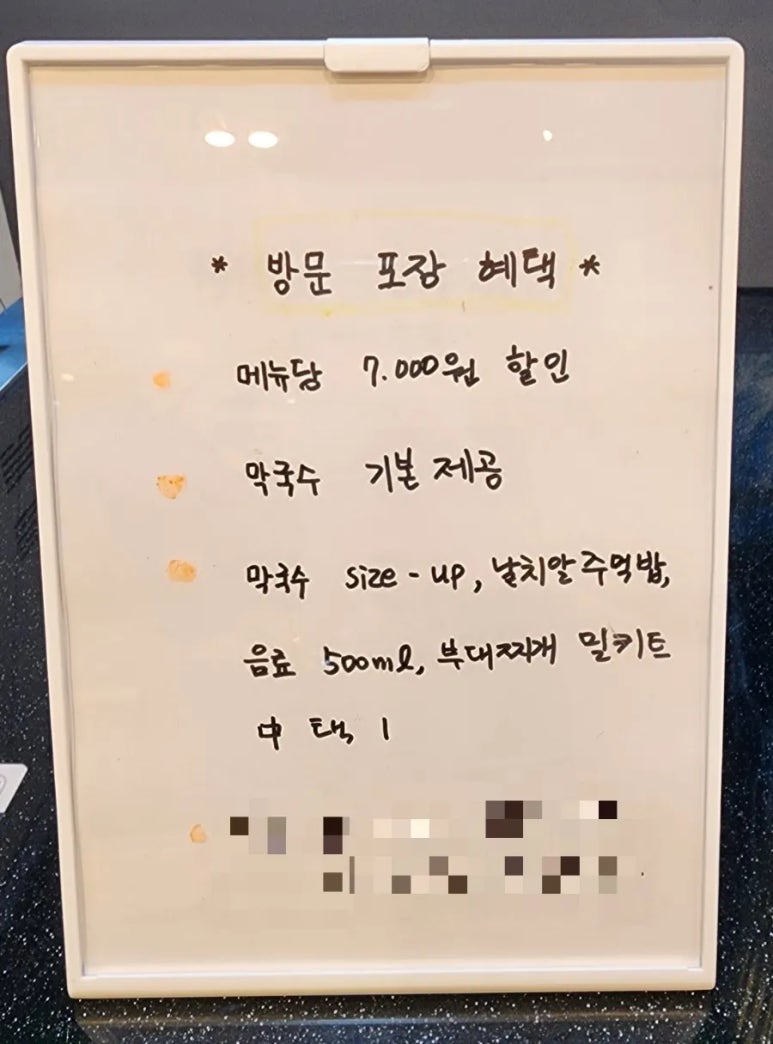 * 방문 포장 혜택 *
메뉴당 7.000원 할인
막국수 기본 제공
막국수 size-up, 날치알주먹밥,
음료 500ml, 부대찌개 밀키트
中 택 1